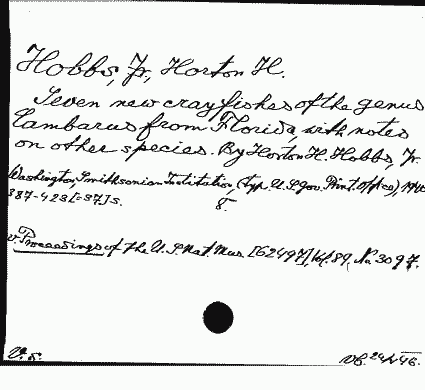 Hobbs, Jr., Horton H.
Seven new crayfishes of the genus
Cambarus from Florida, with notes
on other species. By Horton H. Hobbs, Jr.
Washington, Smithsonian Institution, (typ. U.S. gov. Print. Office), 1940
387-423 [=37] s. 8.
v. Proceedings of the U.S. Nat. Mus. [62497], vol. 89, No. 3097.
V. 5.